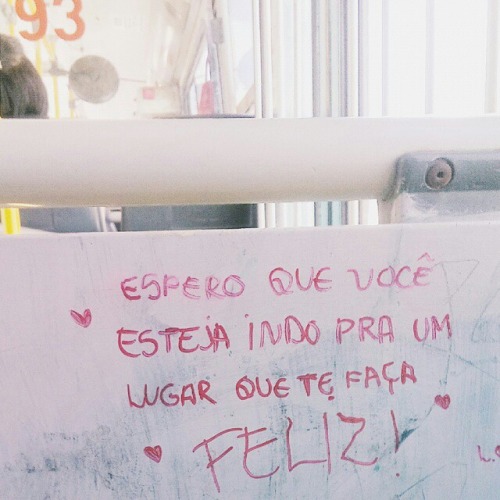 93
ESPERO QUE VOCÊ
ESTEJA INDO PRA UM
LUGAR QUE TE FAÇA
FELIZ!